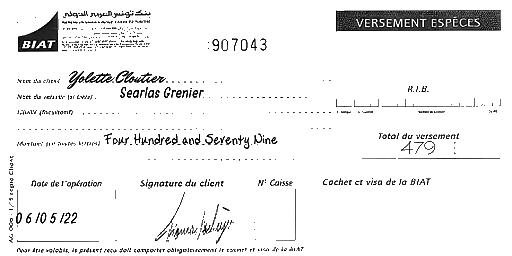 بنك تونس العربي الدولي
BIAT
907043
VERSEMENT ESPÈCES
Nom du client Yolette Cloutier
Nom du verseur (si tiers) Searlas Grenier
R.I.B.
Libellé (facultatif)
Total du versement
Montant (en toutes lettres) Four Hundred and Seventy Nine
479
Date de l'opération Signature du client N° Caisse Cachet et visa de la BIAT
06/05/22
Pour être valable, le présent reçu doit comporter obligatoirement le cachet et visa de la BIAT